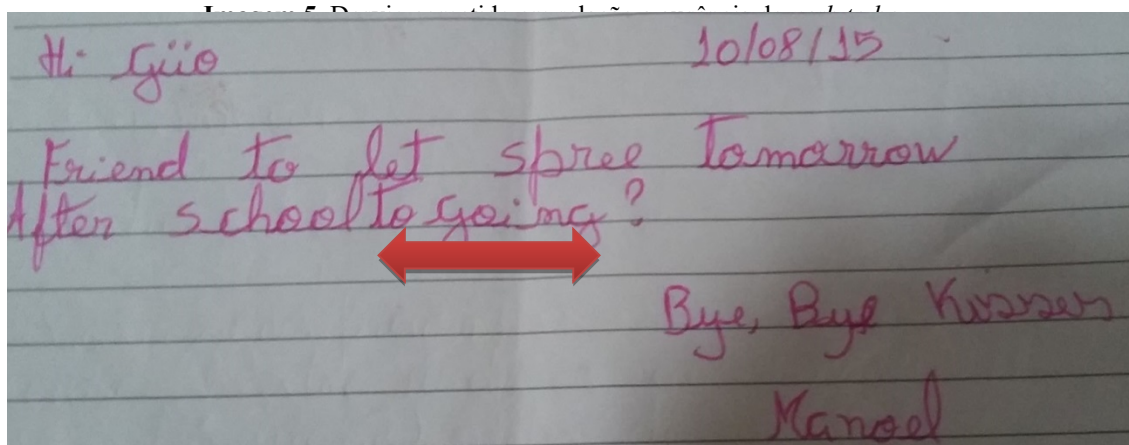 Hi Güo 10/08/15
Friend to let spree Tomorrow
After school to going?
Bye, Bye Kisses
Manoel